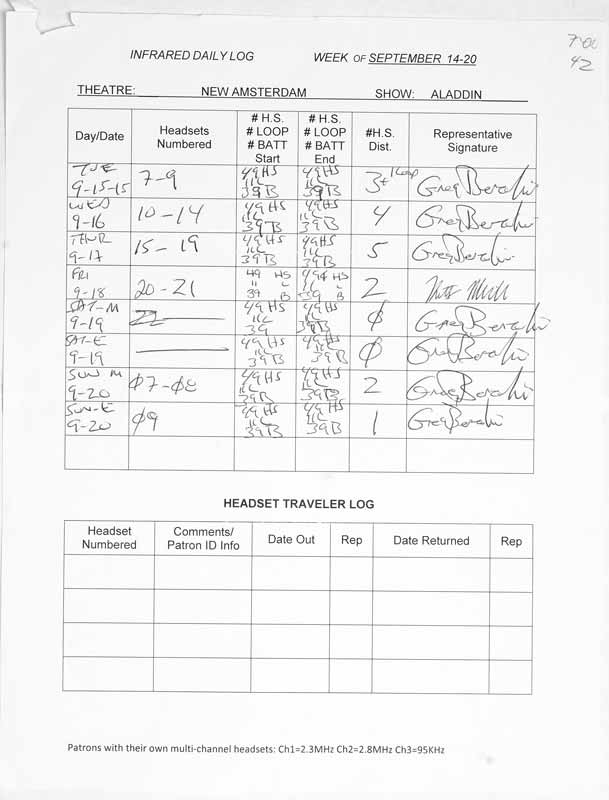 7-00
42
INFRARED DAILY LOG WEEK OF SEPTEMBER 14-20
THEATRE: NEW AMSTERDAM SHOW: ALADDIN
Day/Date Headsets Numbered # H.S. # LOOP # BATT Start # H.S. # LOOP # BATT End #H.S. Dist. Representative Signature
TUE 9-15-15 7-9 49HS 11L 39B 49HS 11L 39B 3+ 1 Loop Greg
WED 9-16 10-14 49HS 11L 39B 49HS 11L 39B 4 Greg
THUR 9-17 15-19 49HS 11L 39B 49HS 11L 39B 5 Greg
FRI 9-18 20-21 49 HS 11 L 39 B 49 HS 11 L 39 B 2
SAT-M 9-19 49HS 11L 39 49HS 11L 39B Ø Greg
SAT-E 9-19 49HS 11L 39B 49HS 11L 39B Ø Greg
SUN M 9-20 Ø7-Ø8 49HS 11L 39B 49HS 11L 39B 2 Greg
SUN-E 9-20 Ø9 49HS 11L 39B 49HS 11L 39B 1 Greg
HEADSET TRAVELER LOG
Headset Numbered Comments/ Patron ID Info Date Out Rep Date Returned Rep
Patrons with their own multi-channel headsets: Ch1=2.3MHz Ch2=2.8MHz Ch3=95KHz